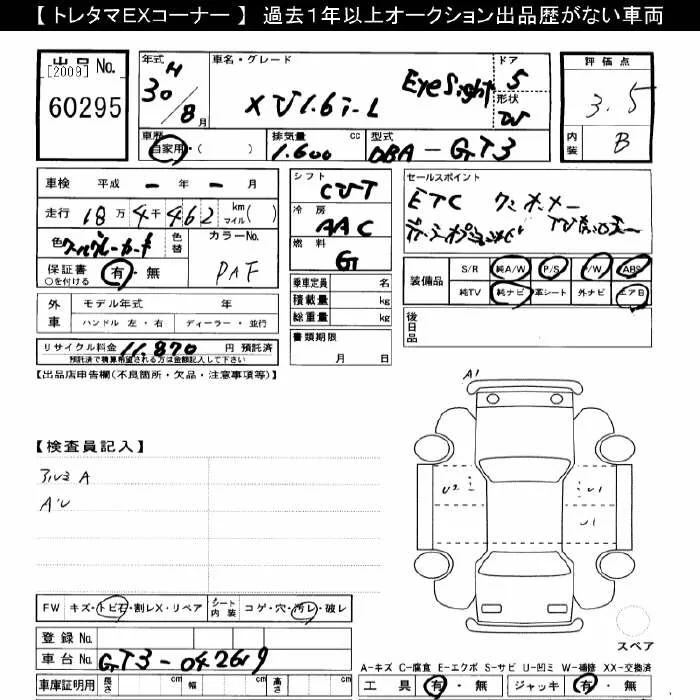 【 トレタマEXコーナー 】 過去1年以上オークション出品歴がない車両
出品 No.
[2009]
60295
年式
H
30/8月
車名・グレード
XV1.6i-L EyeSight
ドア
5
形状
W
評価点
3.5
内装
B
車歴
自家用・( )
排気量 cc
1.600
型式
DBA-GT3
車検 平成 ー 年 ー 月
走行 18万4千462 km マイル( )
色
色替
カラーNo.
PAF
保証書 有・無
○を付ける
シフト
CVT
冷房
AAC
燃料
G
セールスポイント
ETC
装備品
S/R 純A/W P/S P/W ABS
純TV 純ナビ 革シート 外ナビ エアB
外車
モデル年式 年
ハンドル 左・右 ディーラー・並行
乗車定員 名
積載量 kg
総重量 kg
後日品
リサイクル料金 11.870 円 預託済
預託済で積算希望される方は金額記入して下さい
書類期限
月 日
【出品店申告欄(不良箇所・欠品・注意事項等)】
【検査員記入】
アルミ A
A'U
A1
U2
U1
U1
FW キズ・トビ石・割レX・リペア
シート内装 コゲ・穴・汚レ・破レ
登録No.
車台No. GT3-042619
車庫証明用 長さ cm 幅 cm 高さ cm
スペア
A-キズ C-腐食 E-エクボ S-サビ U-凹ミ W-補修 XX-交換済
工具 有・無 ジャッキ 有・無